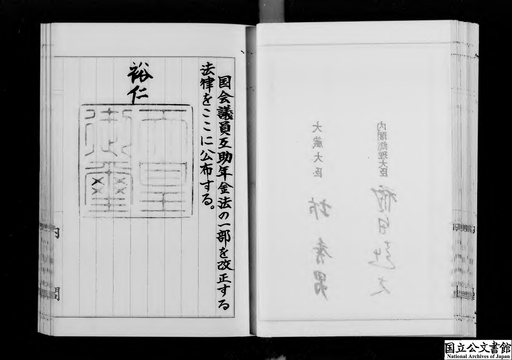 国会議員互助年金法の一部を改正する
法律をここに公布する。
裕仁
天皇
御璽
内閣総理大臣
福田赳夫
大蔵大臣
坊秀男
国立公文書館
National Archives of Japan